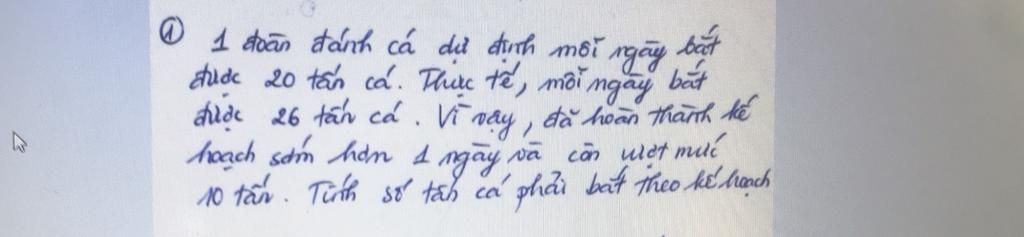 ① 1 đoàn đánh cá dự định mỗi ngày bắt
được 20 tấn cá. Thực tế, mỗi ngày bắt
được 26 tấn cá. Vì vậy, đã hoàn thành kế
hoạch sớm hơn 1 ngày và còn vượt mức
10 tấn. Tính số tấn cá phải bắt theo kế hoạch